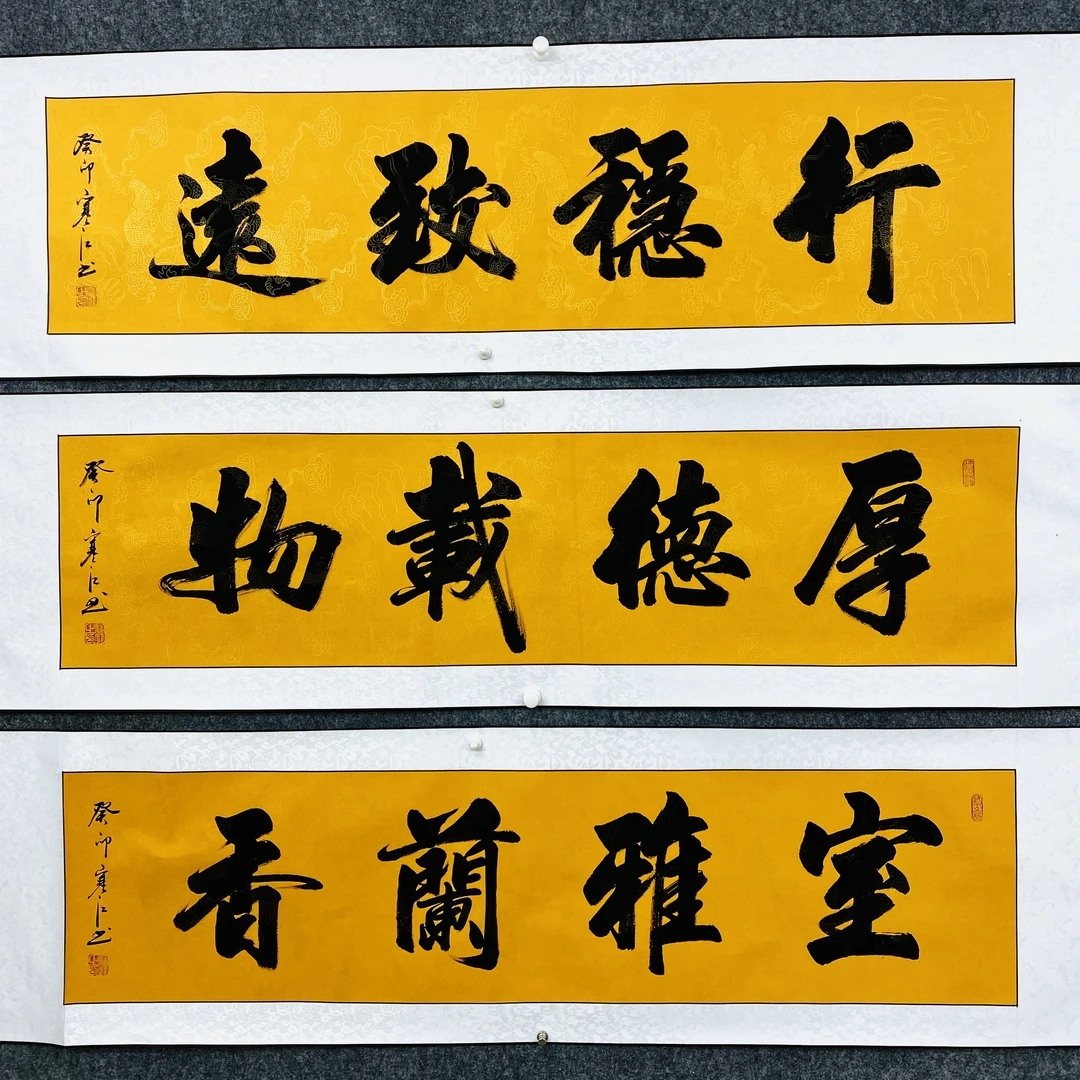 行穩致遠
癸卯寒江书
厚德載物
癸卯寒江书
室雅蘭香
癸卯寒江书